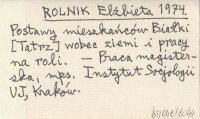 ROLNIK Elżbieta 1974.
Postawy mieszkańców Białki
[Tatrz.] wobec ziemi i pracy
na roli. — Praca magister-
ska, mps. Instytut Socjologii
UJ, Kraków.